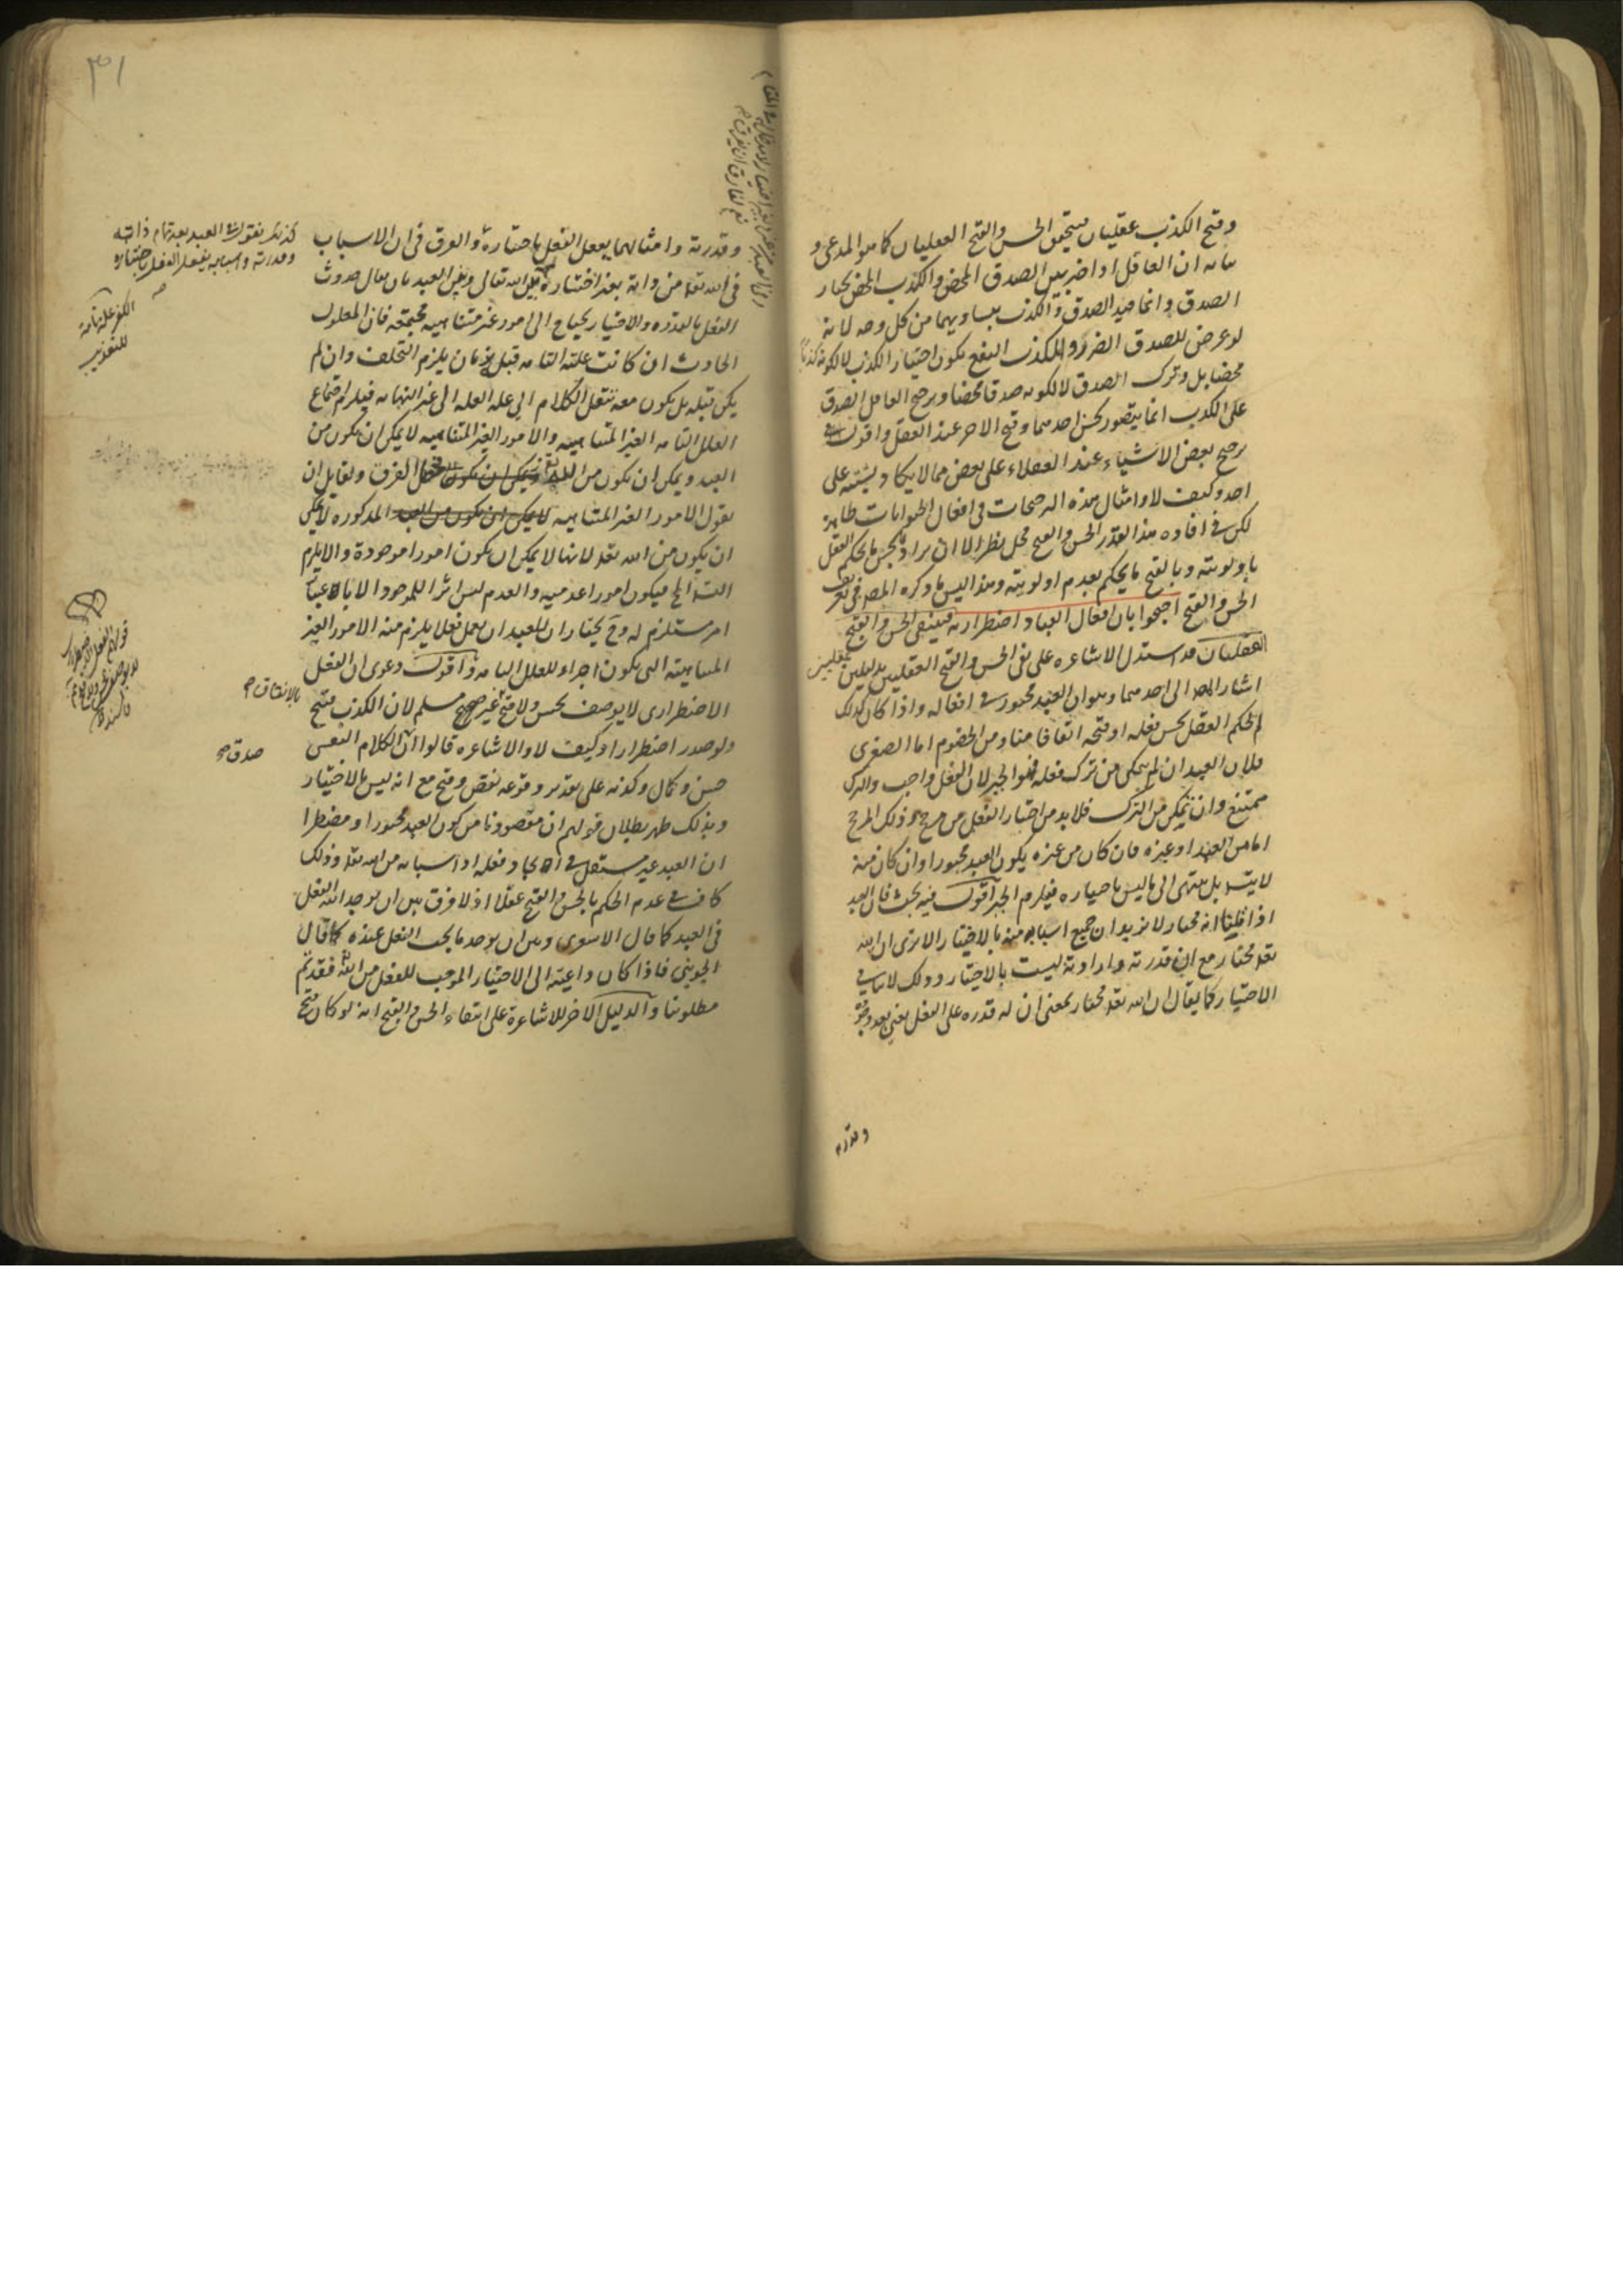 وقبح الكذب عقليان فيتحقق الحسن والقبح العقليان كما هو المدعى و
بيانه ان العاقل اذا خير بين الصدق المحض والكذب المحض يختار
الصدق وانما قيد الصدق والكذب بتساويهما من كل وجه لانه
لو عرض للصدق الضرر وللكذب النفع يكون اختيار الكذب لا لكونه كذبا
محضا بل وترك الصدق لا لكونه صدقا محضا وترجيح العاقل الصدق
على الكذب انما يتصور بحسن احدهما وقبح الاخر عند العقل واقول
ترجيح بعض الاشياء عند العقلاء على بعض مما لا يكاد يشتبه على
احد وكيف لا وامثال هذه الترجيحات في افعال الحيوانات ظاهرة
لكن في افادة هذا القدر الحسن والقبح محل نظر الا ان يراد بالحسن ما يحكم العقل
باولويته وبالقبح ما يحكم بعدم اولويته وهذا ليس ما ذكره المصر في تعريف
الحسن والقبح احتجوا بان افعال العباد اضطرارية فينتفي الحسن والقبح
العقليان قد استدل الاشاعرة على نفي الحسن والقبح العقليين بدليلين
اشار المصر الى احدهما وهو ان العبد مجبور في افعاله واذا كان كذلك
لم يحكم العقل بحسن فعله او قبحه اتفاقا منا ومن الخصوم اما الصغرى
فلان العبد ان لم يتمكن من ترك فعله فهو الجبر لان الفعل واجب والترك
ممتنع وان تمكن من الترك فلا بد من اختيار الفعل من مرجح وذلك المرجح
اما من العبد او غيره فان كان من غيره يكون العبد مجبورا وان كان منه
لا يتسلسل بل ينتهي الى ما ليس باختياره فيلزم الجبر اقول فيه بحث فان العبد
اذا قلنا انه مختار لا نريد ان جميع اسبابه منه بالاختيار الا ترى ان الله
تعه مختار مع ان قدرته وارادته ليست بالاختيار وذلك لا ينافي
الاختيار فكما يقال ان الله تعه مختار بمعنى ان له قدرة على الفعل يعني بعد وجود
وقدرته
وقدرته وامثالهما يفعل الفعل باختياره والفرق في ان الاسباب
في الله تعه من ذاته بغير اختياره بين الله تعالى وبين العبد بان يقال حدوث
الفعل بالقدرة والاختيار يحتاج الى امور غير متناهية مجتمعة فان المعلول
الحادث ان كانت علته التامة قبل زمان يلزم التخلف وان لم
يكن قبله بل يكون معه ننقل الكلام الى علة العلة الى غير النهاية فيلزم اجتماع
العلل التامة الغير المتناهية والامور الغير المتناهية لا يمكن ان يكون من
العبد ويمكن ان يكون من الله فحصل الفرق ولقايل ان
يقول الامور الغير المتناهية المذكورة لا يمكن
ان يكون من الله تعه لانها لا يمكن ان يكون امورا موجودة والا يلزم
التسلسل فيكون امورا عدمية والعدم ليس اثرا للموجود الا باعتبار
امر مستلزم له وح يختار ان للعبد ان يعمل فعلا يلزم منه الامور الغير
المتناهية التي يكون اجزاء للعلل التامة اقول دعوى ان الفعل
الاضطراري لا يوصف بحسن ولا قبح غير مسلم لان الكذب قبيح
ولو صدر اضطرارا وكيف لا والاشاعرة قالوا ان الكلام النفسي
حسن وكمال وكونه على تقدير وقوعه نقص وقبح مع انه ليس بالاختيار
وبذلك ظهر بطلان قولهم ان مقصودنا من كون العبد مجبورا ومضطرا
ان العبد غير مستقل في ايجاد فعله اذ اسبابه من الله تعه وذلك
كاف في عدم الحكم بالحسن والقبح عقلا اذ لا فرق بين ان يوجد الله الفعل
في العبد كما قال الاشعري وبين ان يوجد ما يجب الفعل عنده كما قال
الجويني فاذا كان داعيته الى الاختيار الموجب للفعل من الله فقد تم
مطلوبنا والدليل الاخر للاشاعرة على انتفاء الحسن والقبح انه لو كان قبح
٣١
كذلك نقول العبد بعد تمام ذاته
وقدرته واسبابه يفعل الفعل باختياره
صح
الكفر علة تامة
للتعذيب
بالاتفاق
صدقه